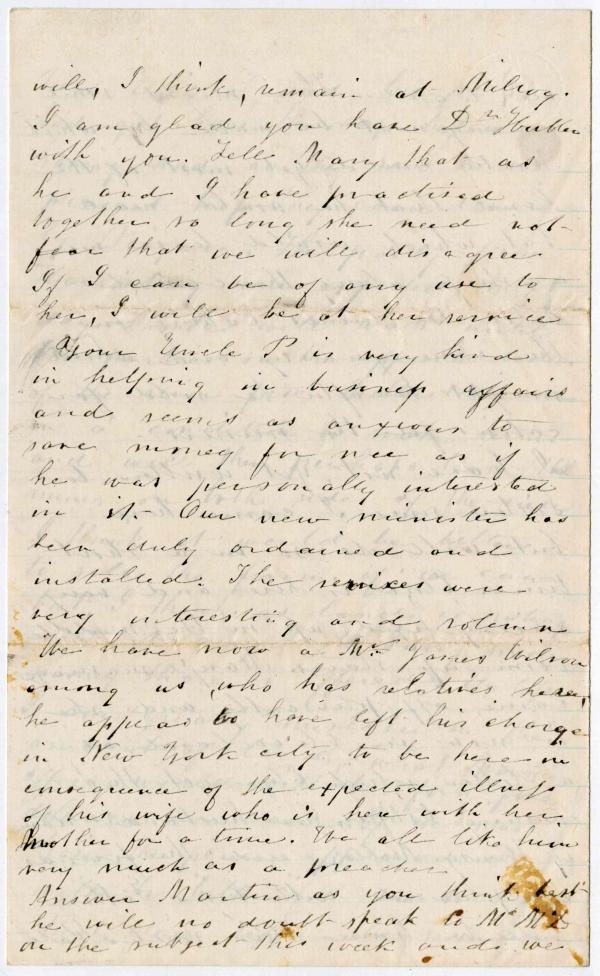 will, I think, remain at Milroy.
I am glad you have Dr.
with you. Tell Mary that as
he and I have practised
together so long she need not
fear that we will disagree
If I can be of any use to
her, I will be at her service
Your Uncle P is very kind
in helping in business affairs
and seems as anxious to
save money for me as if
he was personally interested
in it. Our new minister has
been duly ordained and
installed. The services were
very interesting and solemn
We have now a Mr James Wilson
among us, who has relatives here,
he appears to have left his charge
in New York city to be here in
consequence of the expected illness
of his wife who is here with her
Mother for a time. We all like him
very much as a preacher
Answer Martin as you think best
he will no doubt speak to Mc
on the subject this week and we